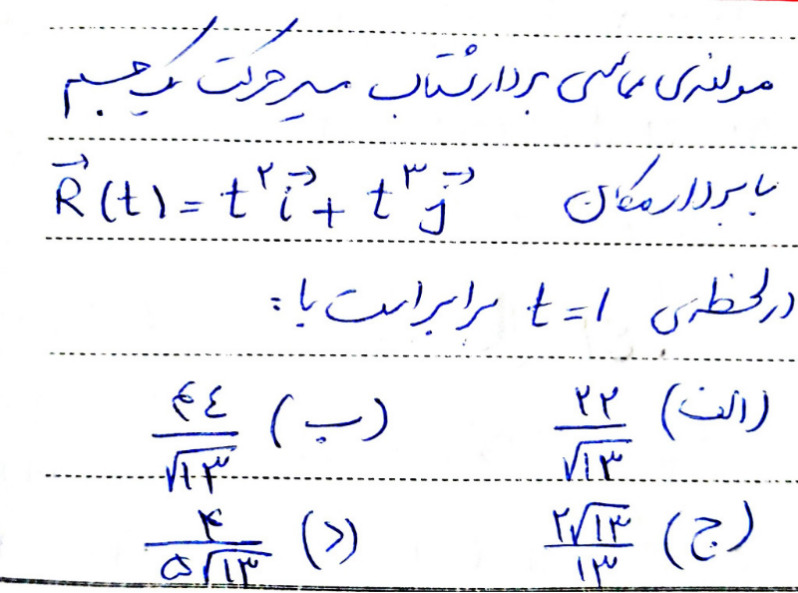 مولفه‌ی مماسی بردار شتاب مسیر حرکت یک جسم
با بردار مکان R⃗(t) = t^۲ i⃗ + t^۳ j⃗
در لحظه‌ی t=1 برابر است با:
الف) ۲۲/√۱۳ ب) ۴۴/√۱۳
ج) ۲√۱۳/۱۳ د) ۴/۵√۱۳